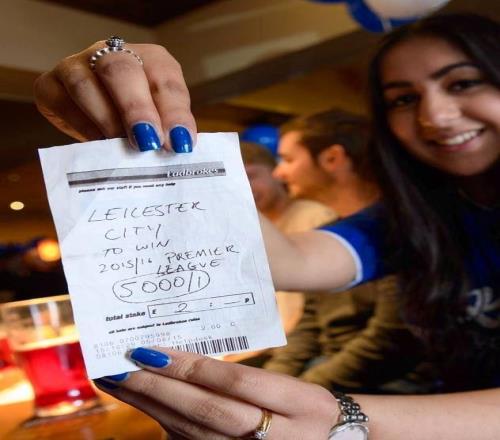 Ladbrokes
please ask my staff if you need any help
LEICESTER
CITY
TO WIN
2015/16 PREMIER
LEAGUE
5000/1
total stake £ 2 : —p
all bets are subject to Ladbrokes rules
2.00